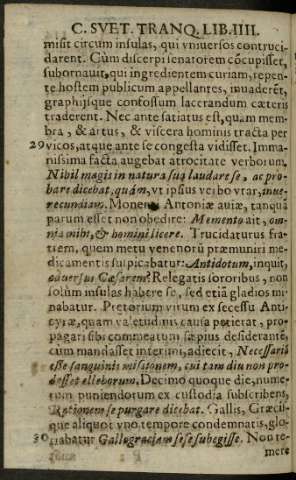 C. SVET. TRANQ. LIB. IIII.
misit circum insulas, qui vniuersos contruci-
darent. Cùm discerpi senatorem cōcupisset,
subornauit, qui ingredientem curiam, repen-
te hostem publicum appellantes, inuaderēt,
graphijsque confossum lacerandum cæteris
traderent. Nec ante satiatus est, quam mem-
bra, & artus, & viscera hominis tracta per
29 vicos, atque ante se congesta vidisset. Imma-
nissima facta augebat atrocitate verborum.
Nihil magis in natura sua laudare se, ac pro-
bare dicebat, quàm, vt ipsius verbo vtar, inue-
recundiam. Monenti Antoniæ auiæ, tanquā
parum esset non obedire: Memento ait, om-
nia mihi, & homini licere. Trucidaturus fra-
trem, quem metu venenorū præmuniri me-
dicamentis suspicabatur: Antidotum, inquit,
aduersus Cæsarem? Relegatis sororibus, non
solùm insulas habere se, sed etiā gladios mi-
nabatur. Prætorium virum ex secessu Anti-
cyræ, quam valetudinis causa petierat, pro-
pagari sibi commeatum sæpius desiderantē,
cùm mandasset interimi, adiecit, Necessariā
esse sanguinis missionem, cui tam diu non pro-
desset elleborum. Decimo quoque die, nume-
rum puniendorum ex custodia subscribens,
Rationem se purgare dicebat. Gallis, Græcis-
que aliquot vno tempore condemnatis, glo-
30 riabatur Gallogræciam se se subegisse. Non te-
mere